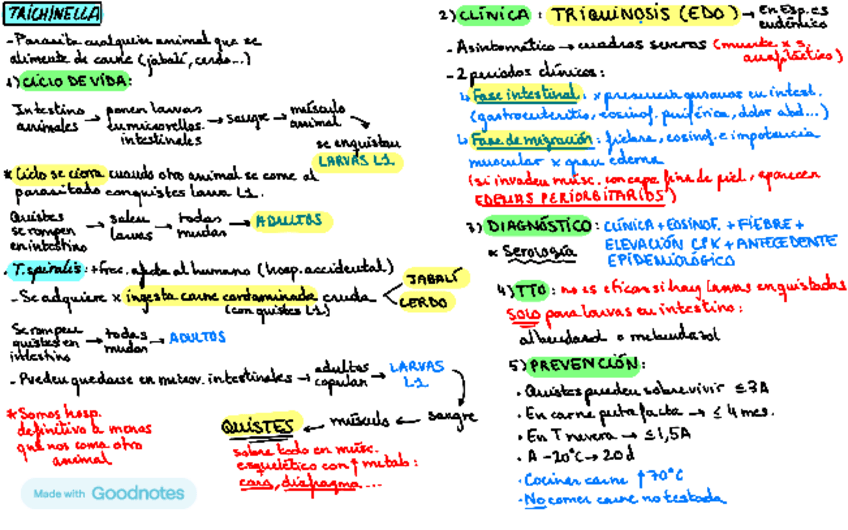 TRICHINELLA
- Parasita cualquier animal que se
alimente de carne (jabalí, cerdo...)
1) CICLO DE VIDA:
Intestino animales → ponen larvas en microvellos. intestinales → sangre → músculo animal
se enquistan
LARVAS L1
* Ciclo se cierra cuando otro animal se come al
parasitado con quistes larva L1.
Quistes se rompen en intestino → salen larvas → todas mudas → ADULTOS
. T. spiralis: + frec. afecta al humano (hosp. accidental)
- Se adquiere x ingesta carne contaminada cruda
(con quistes L1)
JABALÍ
CERDO
Se rompen quistes en intestino → todas mudan → ADULTOS
- Pueden quedarse en microv. intestinales → adultos copulan → LARVAS L1
sangre
músculo
QUISTES
sobre todo en músc.
esquelético con ↑ metab:
cara, diafragma...
* Somos hosp.
definitivo a menos
que nos coma otro
animal
Made with Goodnotes
2) CLÍNICA : TRIQUINOSIS (EDO) → en Esp. es endémico
- Asintomático → cuadros severos (muerte x s. anafiláctico)
- 2 periodos clínicos:
↳ Fase intestinal: x presencia gusanos en intest.
(gastroenteritis, eosinof. periférica, dolor abd...)
↳ Fase de migración: fiebre, eosinof. e impotencia
muscular x gran edema
(si invaden músc. con capa fina de piel, aparecen
EDEMAS PERIORBITARIOS)
3) DIAGNÓSTICO: CLÍNICA + EOSINOF. + FIEBRE +
ELEVACIÓN CPK + ANTECEDENTE
EPIDEMIOLÓGICO
* Serología
4) TTO: no es eficaz si hay larvas enquistadas
SOLO para larvas en intestino:
albendazol o mebendazol
5) PREVENCIÓN:
· Quistes pueden sobrevivir ≤ 3A
· En carne putrefacta → ≤ 4 mes.
· En T nevera → ≤ 1,5A
· A -20°C → 20 d
· Cocinar carne ↑ 70°C
· No comer carne no testada